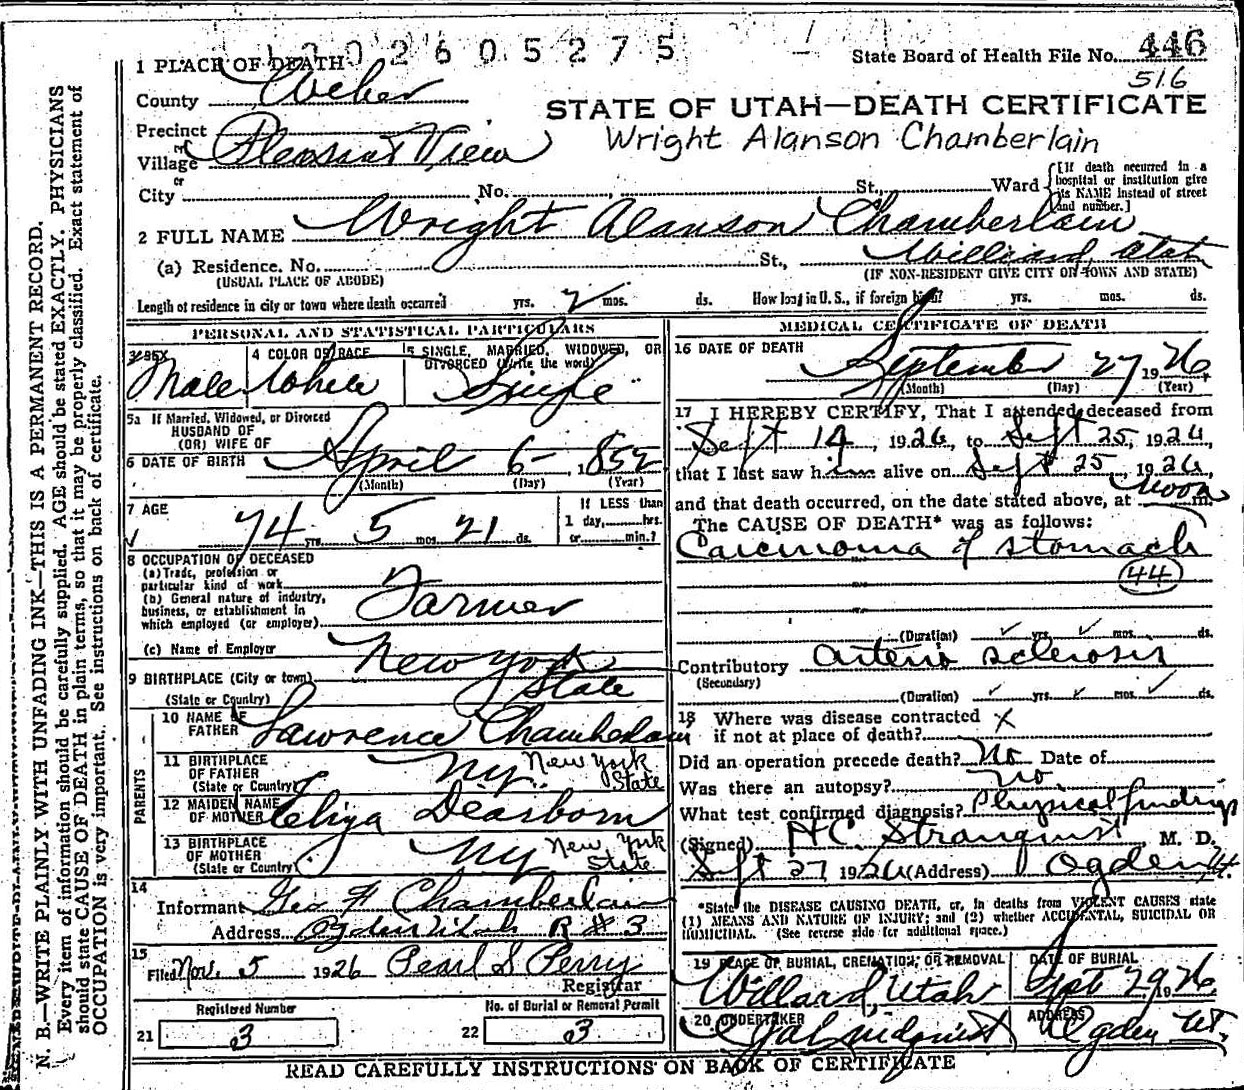 1302605275
State Board of Health File No. 446
516
1 PLACE OF DEATH
County Weber
STATE OF UTAH—DEATH CERTIFICATE
Wright Alanson Chamberlain
Precinct
or
Village Pleasant View
or
City No. St., Ward
[If death occurred in a hospital or institution give its NAME instead of street and number.]
2 FULL NAME Wright Alanson Chamberlain
(a) Residence. No. St., Willard, Utah
(USUAL PLACE OF ABODE) (IF NON-RESIDENT GIVE CITY OR TOWN AND STATE)
Length of residence in city or town where death occurred yrs. 2 mos. ds. How long in U. S., if foreign birth? yrs. mos. ds.
PERSONAL AND STATISTICAL PARTICULARS
3 SEX Male
4 COLOR OR RACE White
5 SINGLE, MARRIED, WIDOWED, OR DIVORCED (Write the word) Single
5a If Married, Widowed, or Divorced
HUSBAND OF
(OR) WIFE OF
6 DATE OF BIRTH April 6— , 1852
(Month) (Day) (Year)
7 AGE 74 yrs. 5 mos. 21 ds.
If LESS than
1 day, hrs.
or min.?
8 OCCUPATION OF DECEASED
(a) Trade, profession or
particular kind of work
(b) General nature of industry,
business, or establishment in
which employed (or employer) Farmer
(c) Name of Employer
9 BIRTHPLACE (City or town) New York
(State or Country) State
PARENTS
10 NAME OF FATHER Lawrence Chamberlain
11 BIRTHPLACE OF FATHER (State or Country) NY New York State
12 MAIDEN NAME OF MOTHER Eliza Dearborn
13 BIRTHPLACE OF MOTHER (State or Country) NY New York State
14
Informant Geo H Chamberlain
Address Ogden Utah R # 3
15
Filed Nov. 5 1926 Pearl S Perry
Registrar
Registered Number
21 3
No. of Burial or Removal Permit
22 3
MEDICAL CERTIFICATE OF DEATH
16 DATE OF DEATH
September 27 1926
(Month) (Day) (Year)
17 I HEREBY CERTIFY, That I attended deceased from
Sept 14, 1926, to Sept 25, 1926,
that I last saw him alive on Sept 25, 1926,
and that death occurred, on the date stated above, at noon m.
The CAUSE OF DEATH* was as follows:
Carcinoma of stomach
44
(Duration) yrs. mos. ds.
Contributory Arterio sclerosis
(Secondary)
(Duration) yrs. mos. ds.
18 Where was disease contracted
if not at place of death? X
Did an operation precede death? No Date of
Was there an autopsy? No
What test confirmed diagnosis? Physical findings
(Signed) H.C. Stranquist M. D.
Sept 27 1926 (Address) Ogden, Ut.
*State the DISEASE CAUSING DEATH, or, in deaths from VIOLENT CAUSES state
(1) MEANS AND NATURE OF INJURY; and (2) whether ACCIDENTAL, SUICIDAL OR
HOMICIDAL. (See reverse side for additional space.)
19 PLACE OF BURIAL, CREMATION, OR REMOVAL Willard, Utah
DATE OF BURIAL Sept 29 1926
20 UNDERTAKER Lindquist
ADDRESS Ogden Ut.
READ CAREFULLY INSTRUCTIONS ON BACK OF CERTIFICATE
N. B.—WRITE PLAINLY WITH UNFADING INK—THIS IS A PERMANENT RECORD.
Every item of information should be carefully supplied. AGE should be stated EXACTLY. PHYSICIANS
should state CAUSE OF DEATH in plain terms, so that it may be properly classified. Exact statement of
OCCUPATION is very important. See instructions on back of certificate.